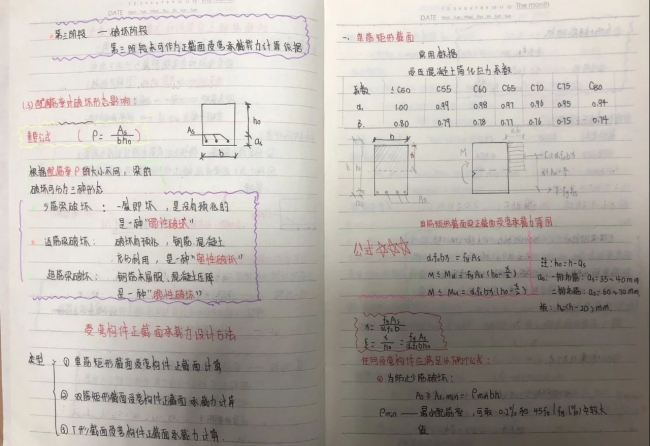 DATE
第三阶段 — 破坏阶段
第三阶段末可作为正截面受弯承载力计算依据
(3) 配筋率对破坏形态影响
重要公式 ( ρ = As / bh₀ )
As
h₀
as
b
根据配筋率ρ的大小不同，梁的
破坏可分为三种形态
少筋梁破坏： 一裂即坏，是没有预兆的
是一种"脆性破坏"
适筋梁破坏： 破坏有预兆，钢筋、混凝土
充分利用，是一种"塑性破坏"
超筋梁破坏： 钢筋未屈服，混凝土压碎
是一种"脆性破坏"
受弯构件正截面承载力设计方法
类型
① 单筋矩形截面受弯构件正截面计算
② 双筋矩形截面受弯构件正截面承载力计算
③ T形截面受弯构件正截面承载力计算.
DATE
一. 单筋矩形截面
常用数据
受压混凝土简化应力系数
系数 ≤C60 C55 C60 C65 C70 C75 C80
α₁ 1.00 0.99 0.98 0.97 0.96 0.95 0.94
β₁ 0.80 0.79 0.78 0.77 0.76 0.75 0.74
b
M
As
单筋矩形截面受正截面受弯承载力简图
公式 ☆☆☆
α₁fcbx = fyAs
M ≤ Mu = fyAs (h₀ - x/2)
M ≤ Mu = α₁fcbx (h₀ - x/2)
注: h₀ = h - as
as: 一排钢筋: as = 35~40mm
二排钢筋: as = 60~70mm
板: h₀ = (h-20) mm
x = fyAs / α₁fcb
ξ = x / h₀ = fyAs / α₁fcbh₀
任何受弯构件应满足以下两个公式:
① 为防止少筋破坏:
As ≥ As,min = ρmin bh
ρmin —— 最小配筋率, 可取 0.2% 和 45ft / fy (%) 中较大
值